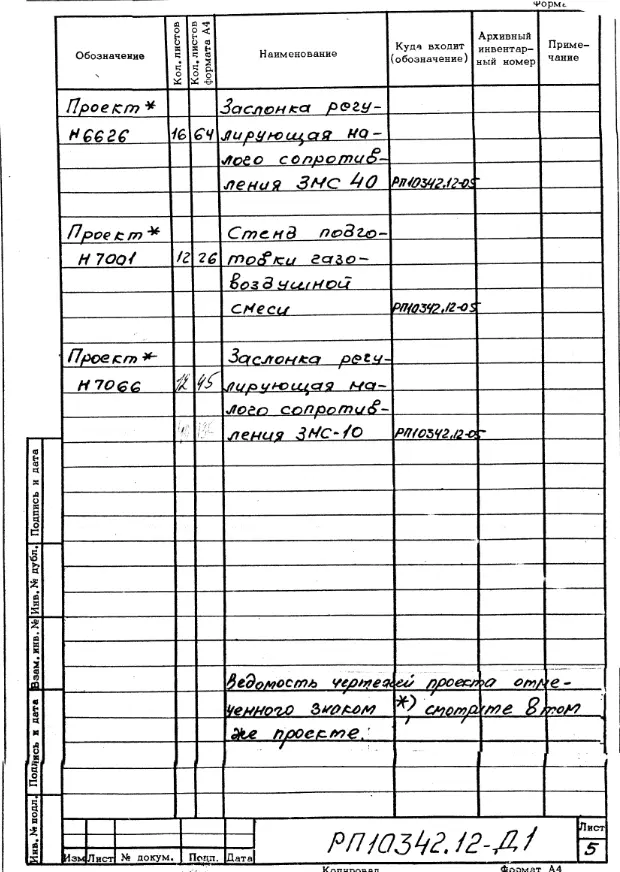 Обозначение
Кол. листов
Кол. листов формата А4
Наименование
Куда входит (обозначение)
Архивный инвентарный номер
Примечание
Проект* Заслонка регу-
Н6626 16 64 лирующая ма-
лого сопротив-
ления ЗМС 40 РП10342.12-05
Проект* Стенд подго-
Н7001 12 26 товки газо-
воздушной
смеси РП10342.12-05
Проект* Заслонка регу-
Н7066 12 45 лирующая ма-
лого сопротив-
ления ЗМС-10 РП10342.12-05
Ведомость чертежей проекта отме-
ченного знаком *), смотрите в том
же проекте.
Подпись и дата
Инв. № дубл.
Взам. инв. №
Подпись и дата
Инв. № подл.
Изм Лист № докум. Подп. Дата
РП10342.12-Д1
Лист
5
Копировал Формат А4